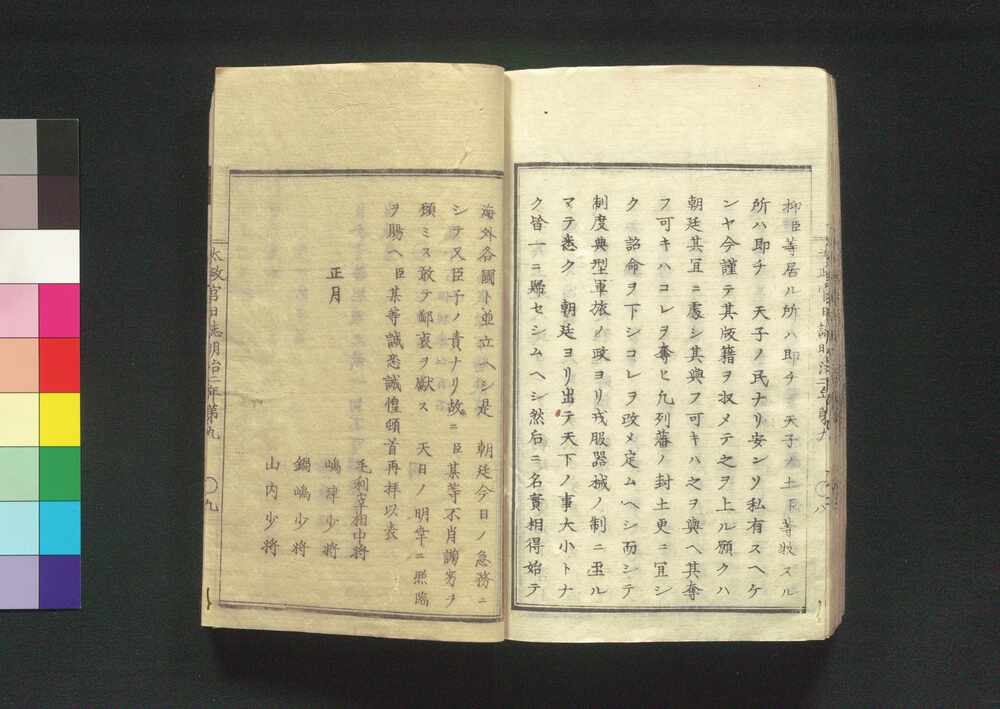 抑臣等居ル所ハ即チ 天子ノ土臣等牧スル
所ハ即チ 天子ノ民ナリ安ンソ私有スヘケ
ンヤ今謹テ其版籍ヲ収メテ之ヲ上ル願クハ
朝廷其冝ニ處シ其與フ可キハ之ヲ與ヘ其奪
フ可キハコレヲ奪ヒ凡列藩ノ封土更ニ冝シ
ク 詔命ヲ下シコレヲ改メ定ムヘシ而シテ
制度典型軍旅ノ政ヨリ戎服器械ノ制ニ至ル
マテ悉ク 朝廷ヨリ出テ天下ノ事大小トナ
ク皆一ニ歸セシムヘシ然后ニ名實相得始テ
海外各國ト並立ヘシ是 朝廷今日ノ急務ニ
シテ又臣子ノ責ナリ故ニ臣某等不肖謭劣ヲ
顧ミス敢テ鄙衷ヲ獻ス 天日ノ明幸ニ照臨
ヲ賜ヘ臣某等誠恐誠惶頓首再拝以表
正月
毛利宰相中將
嶋津少將
鍋嶋少將
山内少將
太政官日誌明治二年第九
〇九